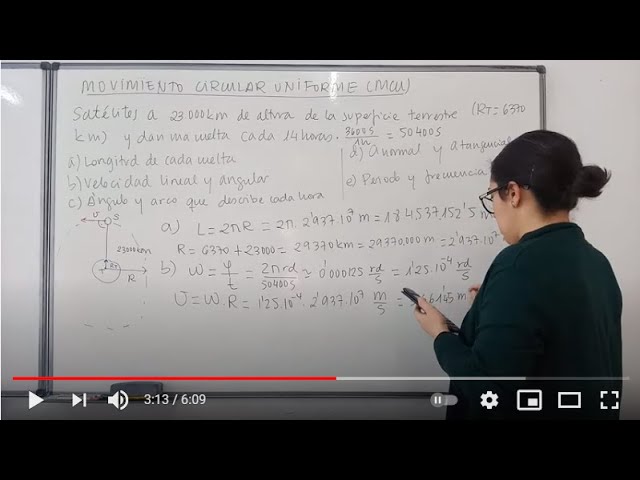 MOVIMIENTO CIRCULAR UNIFORME (MCU)
Satélites a 23.000km de altura de la superficie terrestre (RT=6370
km) y dan una vuelta cada 14 horas. 3600s/1h = 50400s
a) Longitud de cada vuelta
b) Velocidad lineal y angular
c) Ángulo y arco que describe cada hora
d) A normal y a tangencial
e) Periodo y frecuencia
v S
23000km
T RT R
a) L=2πR = 2π. 2'937.10⁷ m = 184537152'5 m
R = 6370 + 23000 = 29370km = 29370.000m = 2'937.10⁷
b) W = φ/t = 2π rd/50400s ≈ 0'000125 rd/s = 1'25.10⁻⁴ rd/s
V = W.R = 1'25.10⁻⁴. 2'937.10⁷ m/s =
3:13 / 6:09